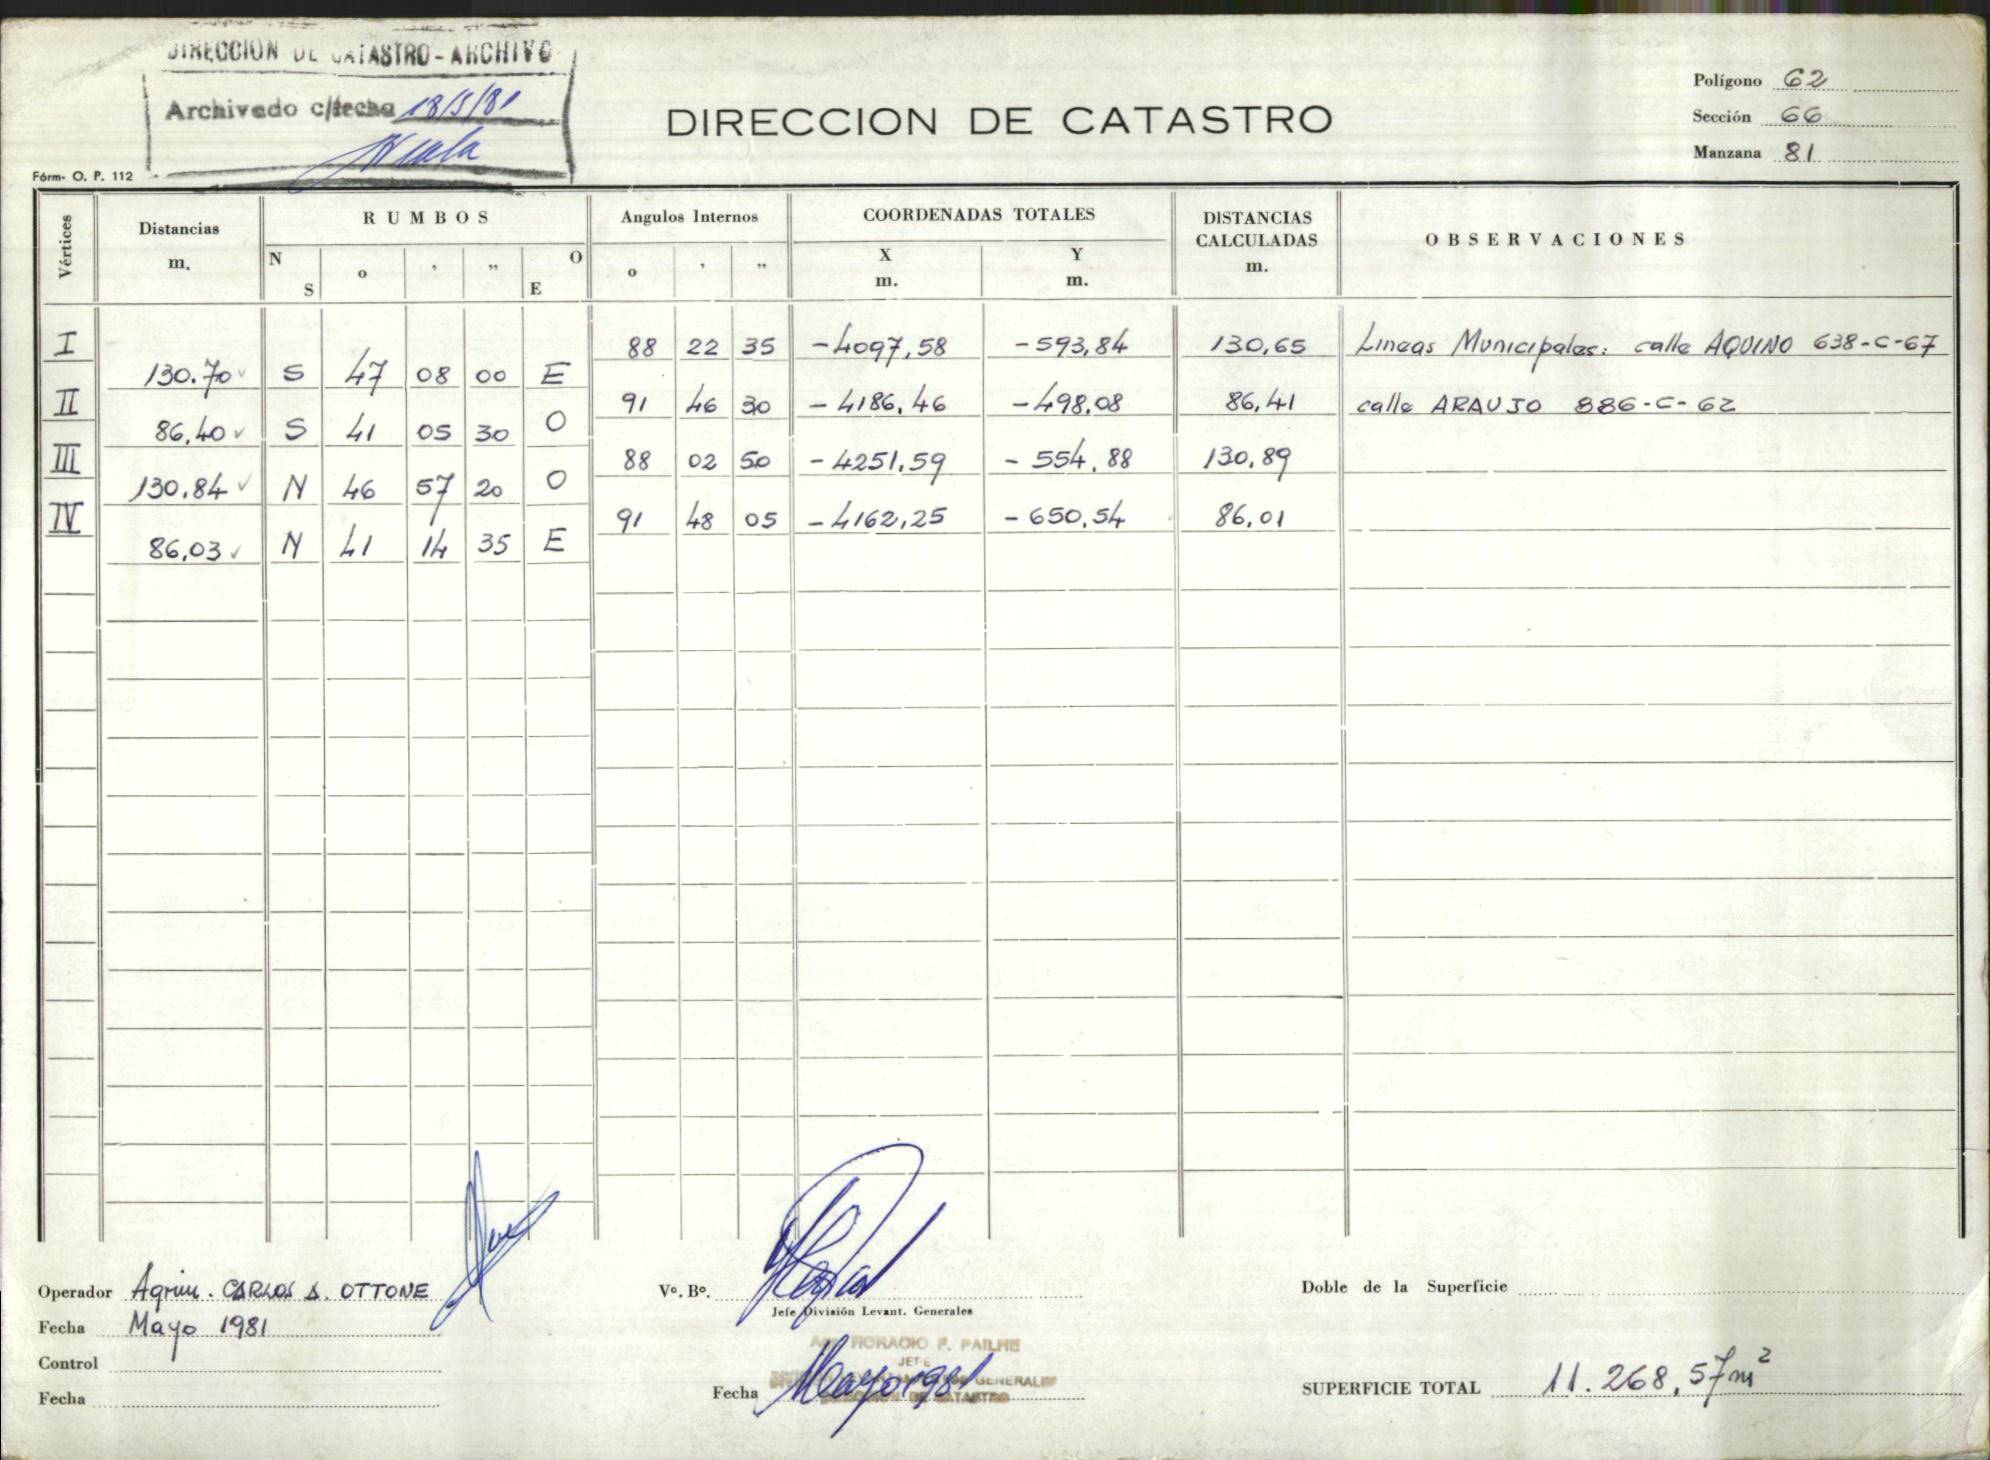 DIRECCION DE CATASTRO - ARCHIVO
Archivedo c/fecha 18/5/81
DIRECCION DE CATASTRO
Polígono 62
Sección 66
Manzana 81
Fórm- O. P. 112
Vértices Distancias m. RUMBOS N S o ' " O E Angulos Internos o ' " COORDENADAS TOTALES X m. Y m. DISTANCIAS CALCULADAS m. OBSERVACIONES
I 88 22 35 -4097,58 -593,84 130,65 Lineas Municipales: calle AQUINO 638-C-67
130.70 S 47 08 00 E
II 91 46 30 -4186,46 -498,08 86,41 calle ARAUJO 886-C-62
86,40 S 41 05 30 O
III 88 02 50 -4251,59 -554,88 130,89
130,84 N 46 57 20 O
IV 91 48 05 -4162,25 -650,54 86,01
86,03 N 41 14 35 E
Operador Agrim. CARLOS A. OTTONE
Fecha Mayo 1981
Control
Fecha
Vo. Bo.
Jefe División Levant. Generales
HORACIO F. PAILHE
JEFE
GENERALES
DE CATASTRO
Fecha Mayo 1981
Doble de la Superficie
SUPERFICIE TOTAL 11.268,57m²